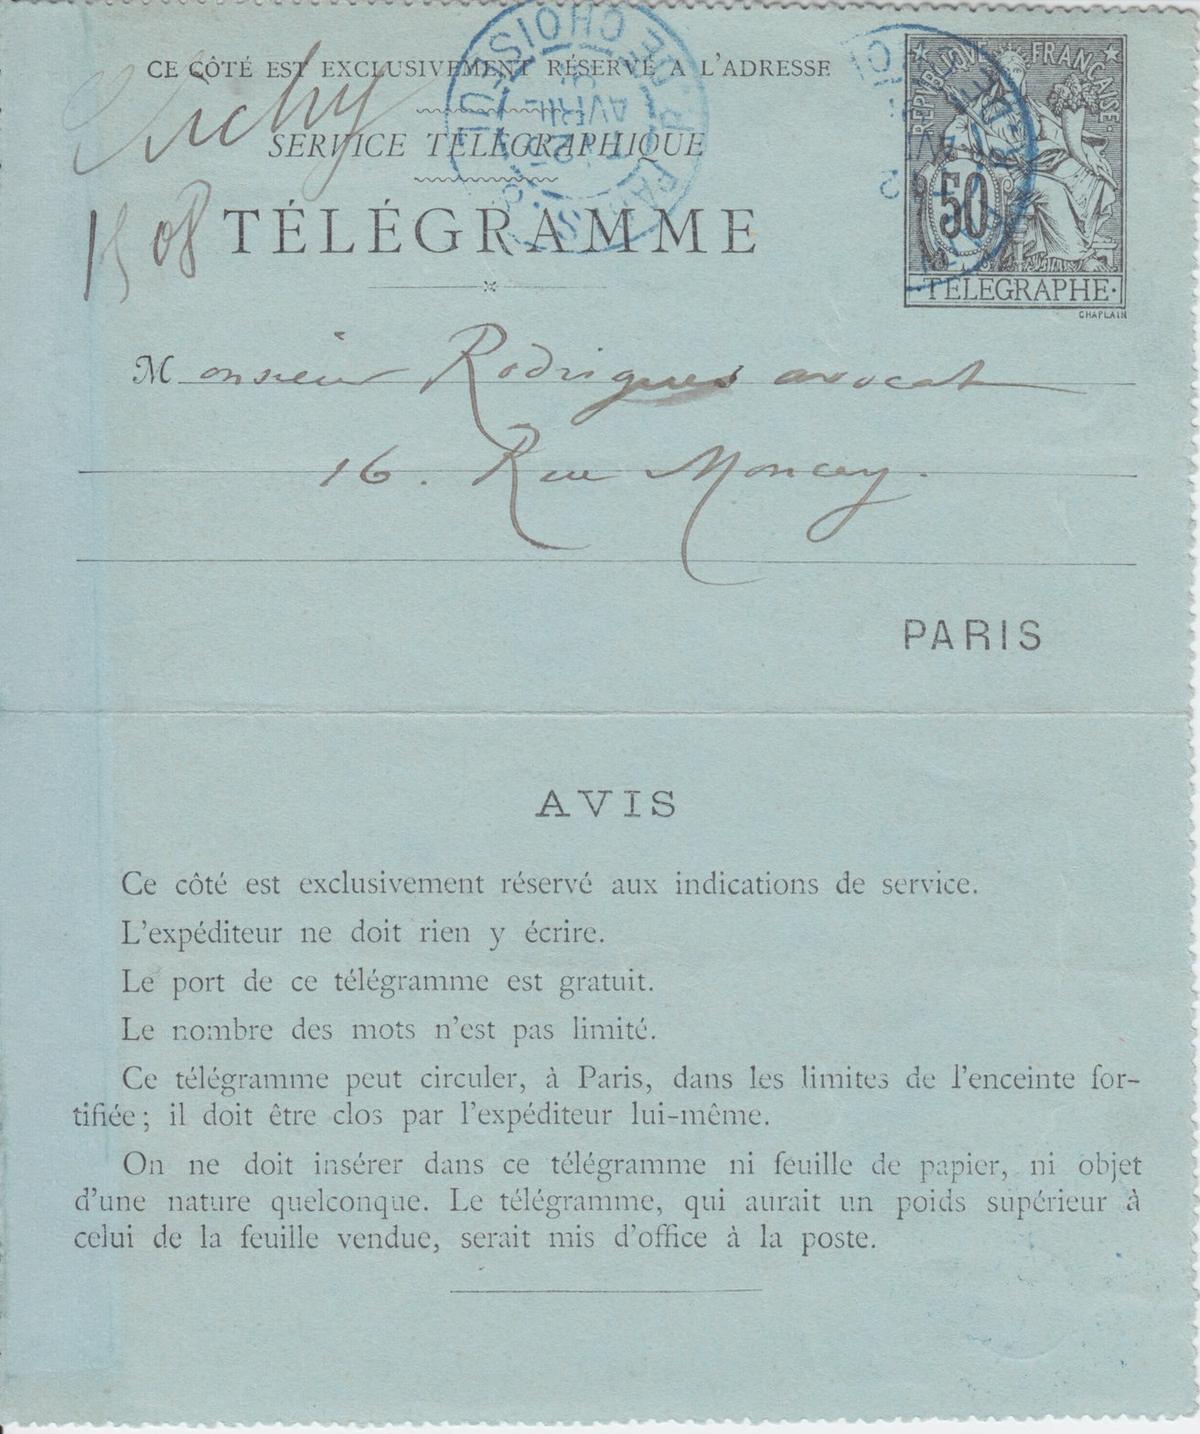 CE CÔTÉ EST EXCLUSIVEMENT RÉSERVÉ A L'ADRESSE
SERVICE TÉLÉGRAPHIQUE
TÉLÉGRAMME
REPUBLIQUE FRANCAISE
50
TELEGRAPHE
CHAPLAIN
Monsieur Rodrigues avocat
16. Rue Moncey.
PARIS
AVIS
Ce côté est exclusivement réservé aux indications de service.
L'expéditeur ne doit rien y écrire.
Le port de ce télégramme est gratuit.
Le nombre des mots n'est pas limité.
Ce télégramme peut circuler, à Paris, dans les limites de l'enceinte for-
tifiée; il doit être clos par l'expéditeur lui-même.
On ne doit insérer dans ce télégramme ni feuille de papier, ni objet
d'une nature quelconque. Le télégramme, qui aurait un poids supérieur à
celui de la feuille vendue, serait mis d'office à la poste.